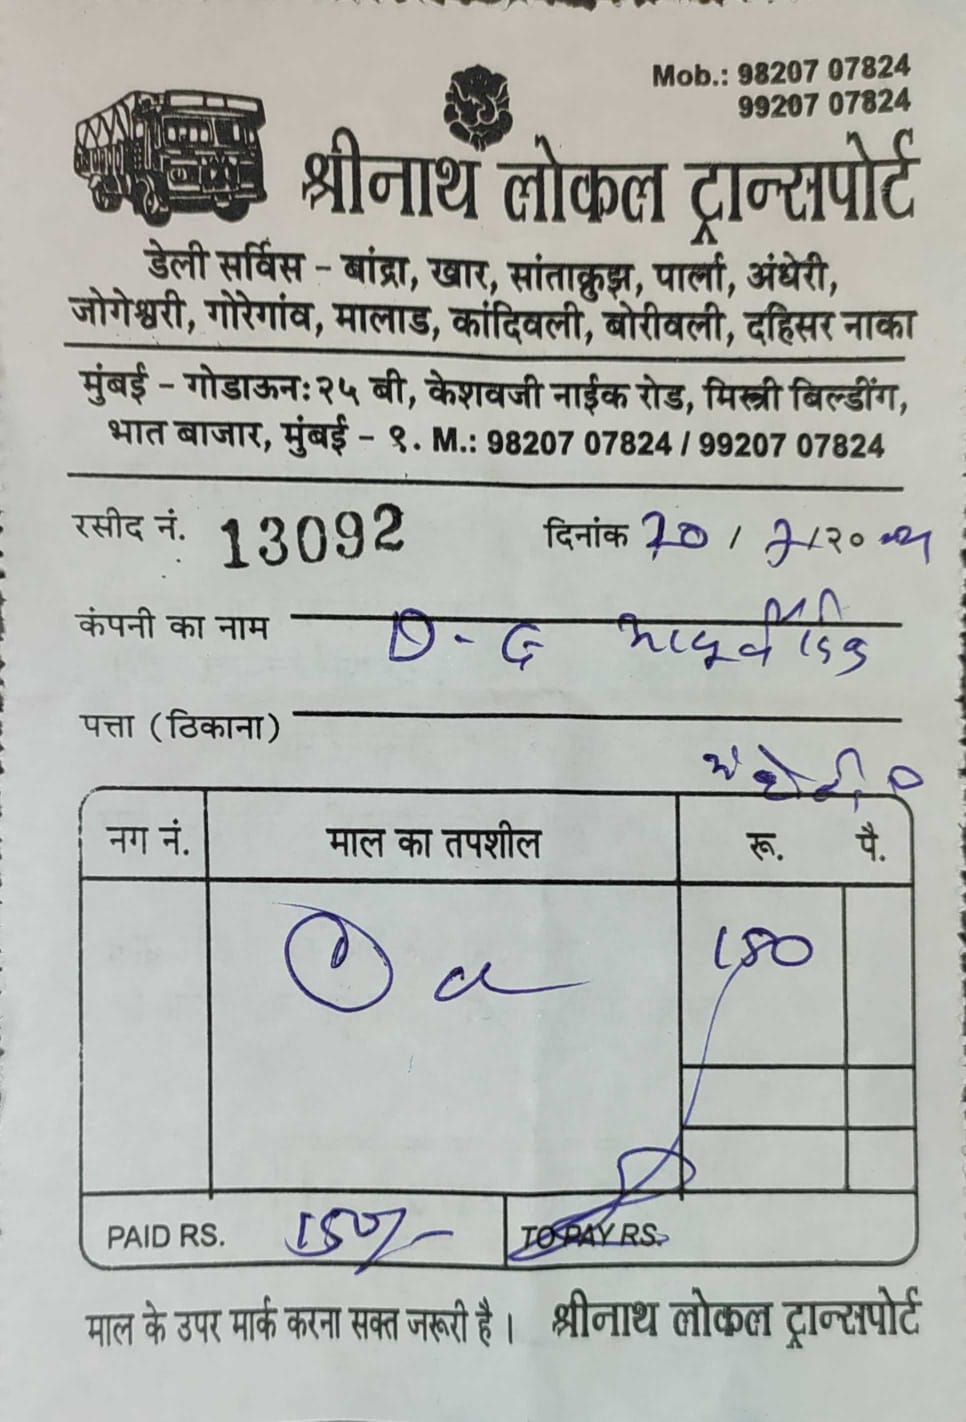 Mob.: 98207 07824
99207 07824
श्रीनाथ लोकल ट्रान्सपोर्ट
डेली सर्विस - बांद्रा, खार, सांताक्रुझ, पार्ला, अंधेरी,
जोगेश्वरी, गोरेगांव, मालाड, कांदिवली, बोरीवली, दहिसर नाका
मुंबई - गोडाऊन: २५ बी, केशवजी नाईक रोड, मिस्त्री बिल्डींग,
भात बाजार, मुंबई - १. M.: 98207 07824 / 99207 07824
रसीद नं. 13092 दिनांक / /२०
कंपनी का नाम D-G
पत्ता (ठिकाना)
नग नं. माल का तपशील रू. पै.
150
PAID RS. 150/- TO PAY RS.
माल के उपर मार्क करना सक्त जरूरी है। श्रीनाथ लोकल ट्रान्सपोर्ट